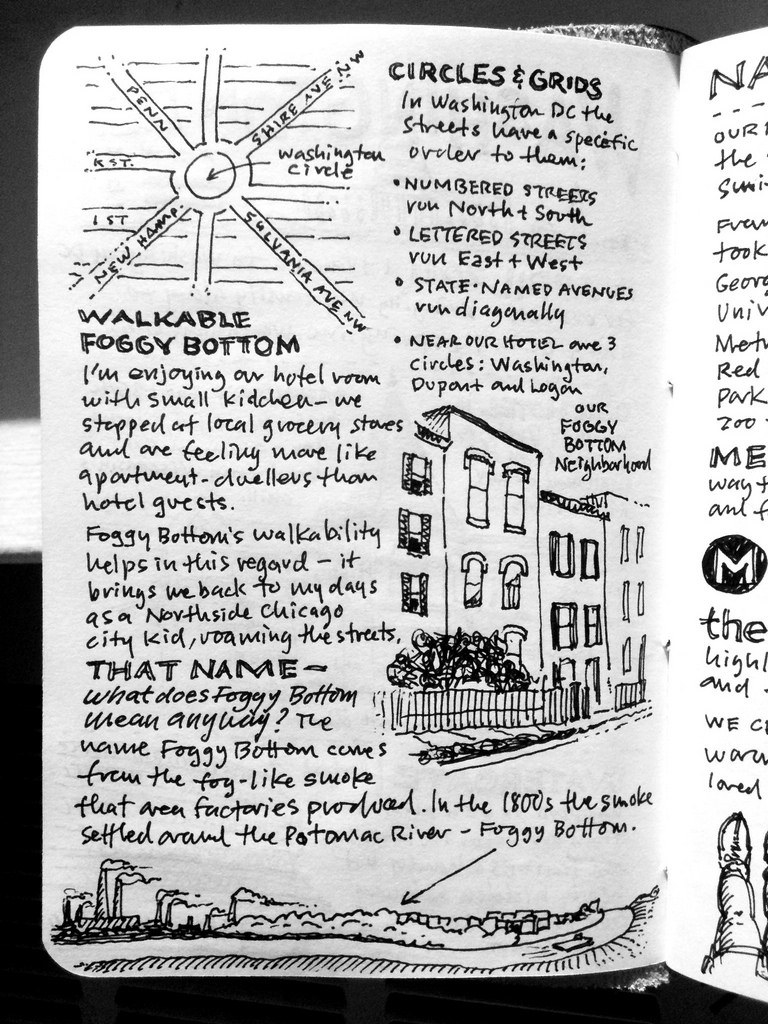 PENN
SHIRE AVE NW
K ST.
Washington
Circle
I ST
NEW HAMP.
SYLVANIA AVE NW
WALKABLE
FOGGY BOTTOM
I'm enjoying our hotel room
with small kidchen - we
stopped at local grocery stores
and are feeling more like
apartment-dwellers than
hotel guests.
Foggy Bottom's walkability
helps in this regard - it
brings me back to my days
as a Northside Chicago
city kid, roaming the streets.
THAT NAME -
what does Foggy Bottom
mean anyway? The
name Foggy Bottom comes
from the fog-like smoke
that area factories produced. In the 1800's the smoke
settled around the Potomac River - Foggy Bottom.
CIRCLES & GRIDS
In Washington DC the
streets have a specific
order to them:
• NUMBERED STREETS
run North + South
• LETTERED STREETS
run East + West
• STATE-NAMED AVENUES
run diagonally
• NEAR OUR HOTEL are 3
circles: Washington,
Dupont and Logan
OUR
FOGGY
BOTTOM
Neighborhood
NA
OUR
the
Smi
From
took
Georg
Univ
Metr
Red
Park
zoo
ME
way t
and f
M
the
highl
and
WE C
warm
loved